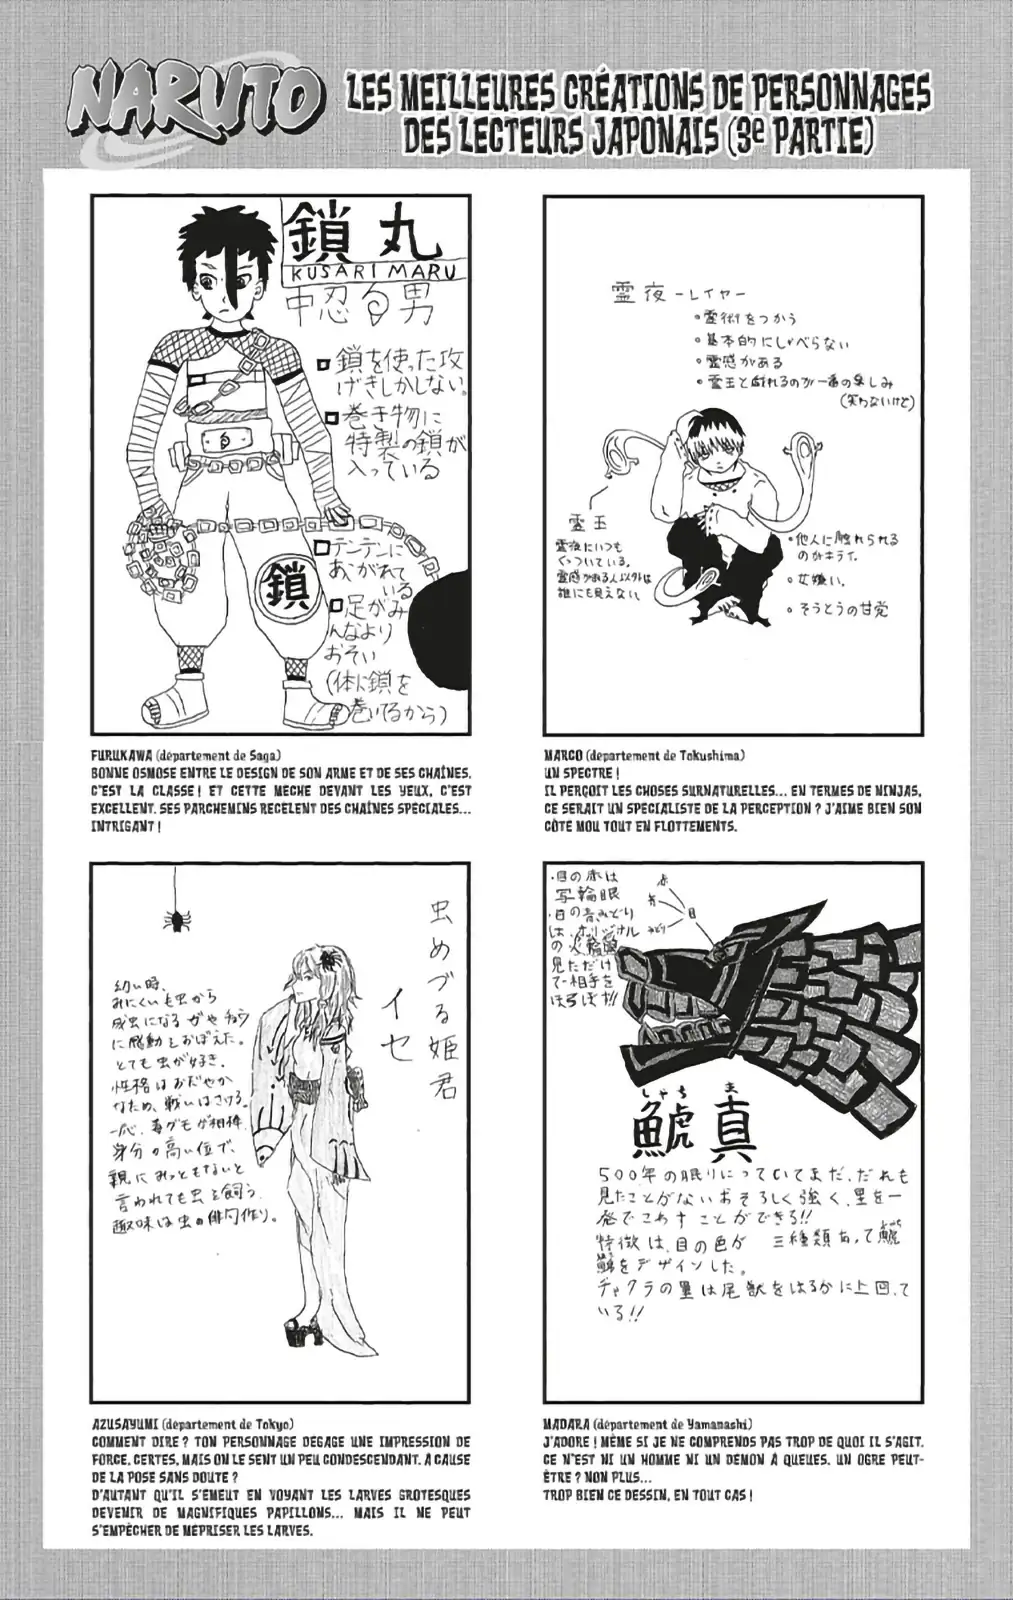 NARUTO
LES MEILLEURES CRÉATIONS DE PERSONNAGES
DES LECTEURS JAPONAIS (3e PARTIE)
鎖丸
KUSARI MARU
中忍 男
鎖を使った攻
げきしかしない。
巻き物に
特製の鎖が
入っている
テンテンに
あこがれて
いる
足がみ
んなより
おそい
(体に鎖を
巻いてるから)
鎖
FURUKAWA (département de Saga)
BONNE OSMOSE ENTRE LE DESIGN DE SON ARME ET DE SES CHAÎNES.
C'EST LA CLASSE ! ET CETTE MECHE DEVANT LES YEUX, C'EST
EXCELLENT. SES PARCHEMINS RECÈLENT DES CHAÎNES SPÉCIALES...
INTRIGANT !
霊夜 ーレイヤー
・霊術をつかう
・基本的にしゃべらない
・霊感がある
・霊王と戯れるのが一番の楽しみ
(笑わないけど)
霊王
霊夜にいつも
くっついている。
霊感がある人以外は
誰にも見えない。
・他人に触れられる
のがキライ。
・女嫌い。
・そうとうの甘党
MARCO (département de Tokushima)
UN SPECTRE !
IL PERÇOIT LES CHOSES SURNATURELLES... EN TERMES DE NINJAS,
CE SERAIT UN SPÉCIALISTE DE LA PERCEPTION ? J'AIME BIEN SON
CÔTÉ MOU TOUT EN FLOTTEMENTS.
虫めづる姫君
イセ
幼い時、
みにくいも虫から
成虫になるガやチョウ
に感動をおぼえた。
とても虫が好き。
性格はおだやか
なため、戦いはさける。
一応、毒グモが相棒。
身分の高い位で、
親にみっともないと
言われても虫を飼う。
趣味は虫の俳句作り。
AZUSAYUMI (département de Tokyo)
COMMENT DIRE ? TON PERSONNAGE DÉGAGE UNE IMPRESSION DE
FORCE, CERTES, MAIS ON LE SENT UN PEU CONDESCENDANT. A CAUSE
DE LA POSE SANS DOUTE ?
D'AUTANT QU'IL S'ÉMEUT EN VOYANT LES LARVES GROTESQUES
DEVENIR DE MAGNIFIQUES PAPILLONS... MAIS IL NE PEUT
S'EMPÊCHER DE MÉPRISER LES LARVES.
・目の赤は
写輪眼
・目の青、みどり
は、オリジナル
の火輪眼
見ただけ
で相手を
ほろぼす!!
赤
青
みどり
目
しゃち ま
鯱真
500年の眠りについていてまだ、だれも
見たことがないおそろしく強く、星を一
発でこわすことができる!!
特徴は、目の色が 三種類あって鯱
をデザインした。
チャクラの量は尾獣をはるかに上回って
いる!!
MADARA (département de Yamanashi)
J'ADORE ! MÊME SI JE NE COMPRENDS PAS TROP DE QUOI IL S'AGIT.
CE N'EST NI UN HOMME NI UN DÉMON À QUEUES. UN OGRE PEUT-
ÊTRE ? NON PLUS...
TROP BIEN CE DESSIN, EN TOUT CAS !